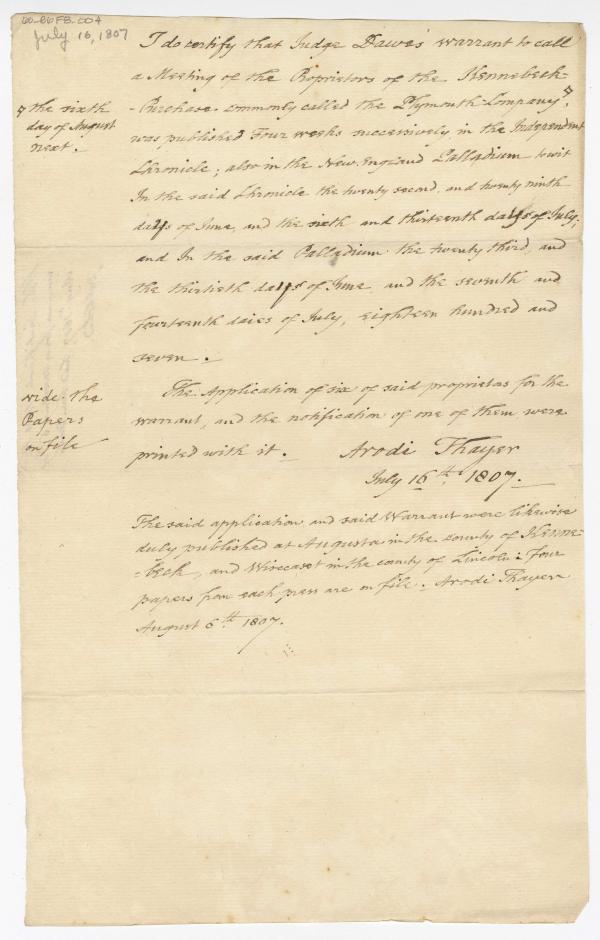 60-B6F8-004
July 16, 1807
I do certify that Judge Dawes warrant to call
a Meeting of the Proprietors of the Kennebeck-
-Purchase commonly called the Plymouth-Company,
the sixth
day of August
next.
was published Four weeks successively in the Independent
Chronicle; also in the New England Palladium towit
In the said Chronicle the twenty second, and twenty ninth
days of June, and the sixth and thirteenth days of July,
and In the said Palladium the twenty third, and
the thirtieth days of June, and the seventh and
fourteenth daies of July, eighteen hundred and
seven.
vide the
Papers
on file
The Application of six of said proprietors for the
warrant, and the notification of one of them were
printed with it. Arodi Thayer
July 16th 1807.
The said application and said Warrant were likewise
duly published at Augusta in the county of Kenne-
-beck, and Wiscasset in the county of Lincoln: Four
papers from each press are on file. Arodi Thayer
August 6th 1807.